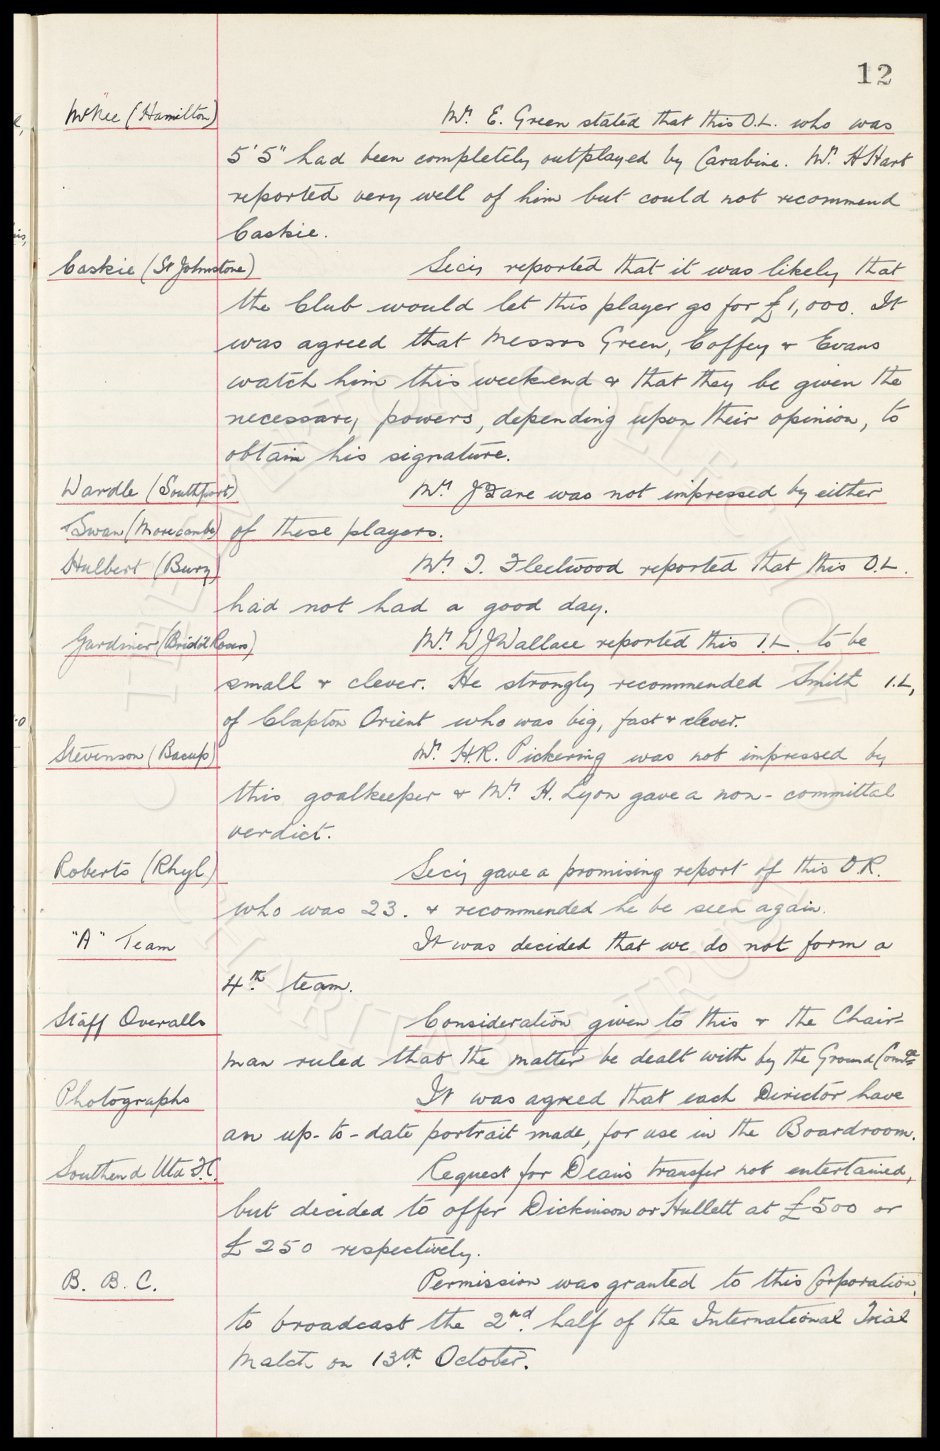 12
McNee (Hamilton) Mr. E. Green stated that this O.L. who was
5'5" had been completely outplayed by Carabine. Mr. H Hart
reported very well of him but could not recommend
Caskie.
Caskie (St Johnstone) Secy reported that it was likely that
the Club would let this player go for £1,000. It
was agreed that Messrs Green, Coffey & Evans
watch him this weekend & that they be given the
necessary powers, depending upon their opinion, to
obtain his signature.
Wardle (Southport) Mr. J Fare was not impressed by either
Swan (Morecambe) of these players.
Hulbert (Bury) Mr. T. Fleetwood reported that this O.L.
had not had a good day.
Gardiner (Bristol Rovers) Mr. W J Wallace reported this I.L. to be
small & clever. He strongly recommended Smith I.L,
of Clapton Orient who was big, fast & clever.
Stevenson (Bacup) Mr. H.R. Pickering was not impressed by
this goalkeeper & Mr. H. Lyon gave a non-committal
verdict.
Roberts (Rhyl) Secy gave a promising report of this O.R.
who was 23. & recommended he be seen again.
"A" Team It was decided that we do not form a
4th team.
Staff Overalls Consideration given to this & the Chair-
man ruled that the matter be dealt with by the Ground Comtee
Photographs It was agreed that each Director have
an up-to-date portrait made, for use in the Boardroom.
Southend Utd F.C. Request for Dean's transfer not entertained,
but decided to offer Dickinson or Hullett at £500 or
£250 respectively.
B. B. C. Permission was granted to this Corporation,
to broadcast the 2nd. half of the International Trial
Match on 13th. October.
THE EVERTON COLLECTION
CHARITABLE TRUST